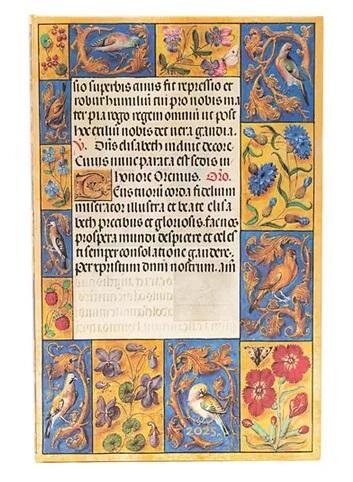 sio superbis annis fit repressio et
robur humiliū cui pro nobis ma
ter pia regō regem omniū ut post
hoc exiliū nobis det vera gaudia.
V. Dñs elisabeth induit decore.
Cuius nunc parata est sedis in
honore Oremus. Oro.
Deus tuorū corda fidelium
miserator illustra et beate elisa
beth precibus et gloriosis, fac nos
prospera mundi despicere et celes
ti semper consolatione gaudere.
Per xpristum dnm̄ nostrum. am̄
2025